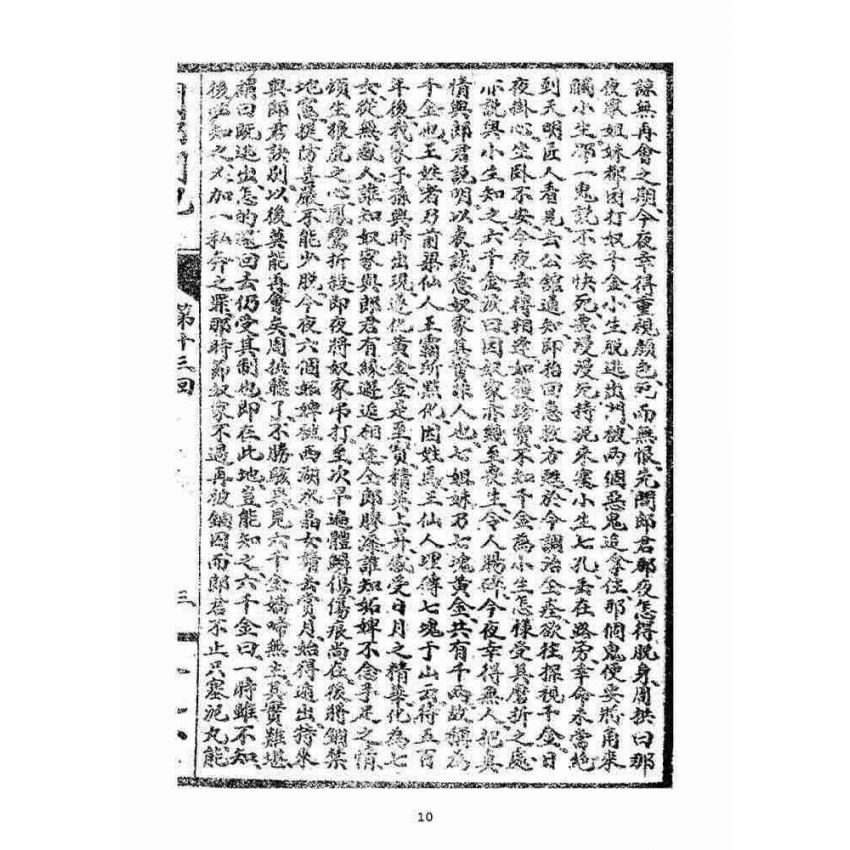 諒無再會之期今夜幸得重視顏色死而無恨先問郎君那夜怎得脫身周拱曰那
夜蒙姐妹都因打奴千金小生脫逃出門被兩個惡鬼追拿住那個鬼便要將角來
觸小生那一鬼說不安快死要漫漫死持泥來塞小生七孔丟在路旁幸命未當絕
到天明匠人看見去公館通知即抬回急救方甦於今調治全痊欲往探視千金日
夜掛心坐卧不安今夜幸得相逢如獲珍寶不知千金為小生怎樣受其磨折之處
亦說與小生知之六千金泣曰因奴家亦幾至喪生令人腸碎今夜幸得無人把真
情與郎君說明以表誠意奴家其實非人也七姐妹乃七塊黃金共有千兩故稱為
千金也王姓者乃前梁仙人王霸所點化因姓為王仙人埋得七塊于山云待五百
年後我家子孫與時出現遂化黃金金是至寶精英上昇感受日月之精華化為七
女從無感人誰知奴家與郎君有緣邂逅相逢全郎膠漆誰知妬婢不念手足之情
頓生狼虎之心鳳鸞折散即夜將奴家吊打至次早遍體鱗傷傷痕尚在後將鎖禁
地窖提防甚嚴不能少脫今夜六個娘婢被西湖水晶女請去賞月始得逃出特來
與郎君訣別以後莫能再會矣周拱聽了不勝駭異見六千金嬌啼無主其實難堪
謂曰既逃出怎的還回去仍受其制也即在此地豈能知之六千金曰一時雖不知
後必知之又加一私奔之罪那時節奴家不過再被鎖因而郎君不止只塞泥丸能
第十三回
三
10